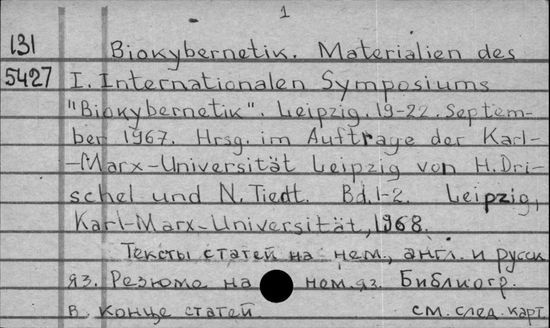 1
131 Biokybernetik. Materialien des
5427 I. Internationalen Symposiums
"Biokybernetik". Leipzig. 19-22. Septem-
ber 1967. Hrsg. im Auftrage der Karl-
-Marx-Universität Leipzig von H. Dri-
schel und N. Tiedt. Bd. 1-2. Leipzig,
Karl-Marx-Universität, 1968.
Тексты статей на нем., англ. и русск
яз. Резюме на нем. яз. Библиогр.
в конце статей. см. след. карт.